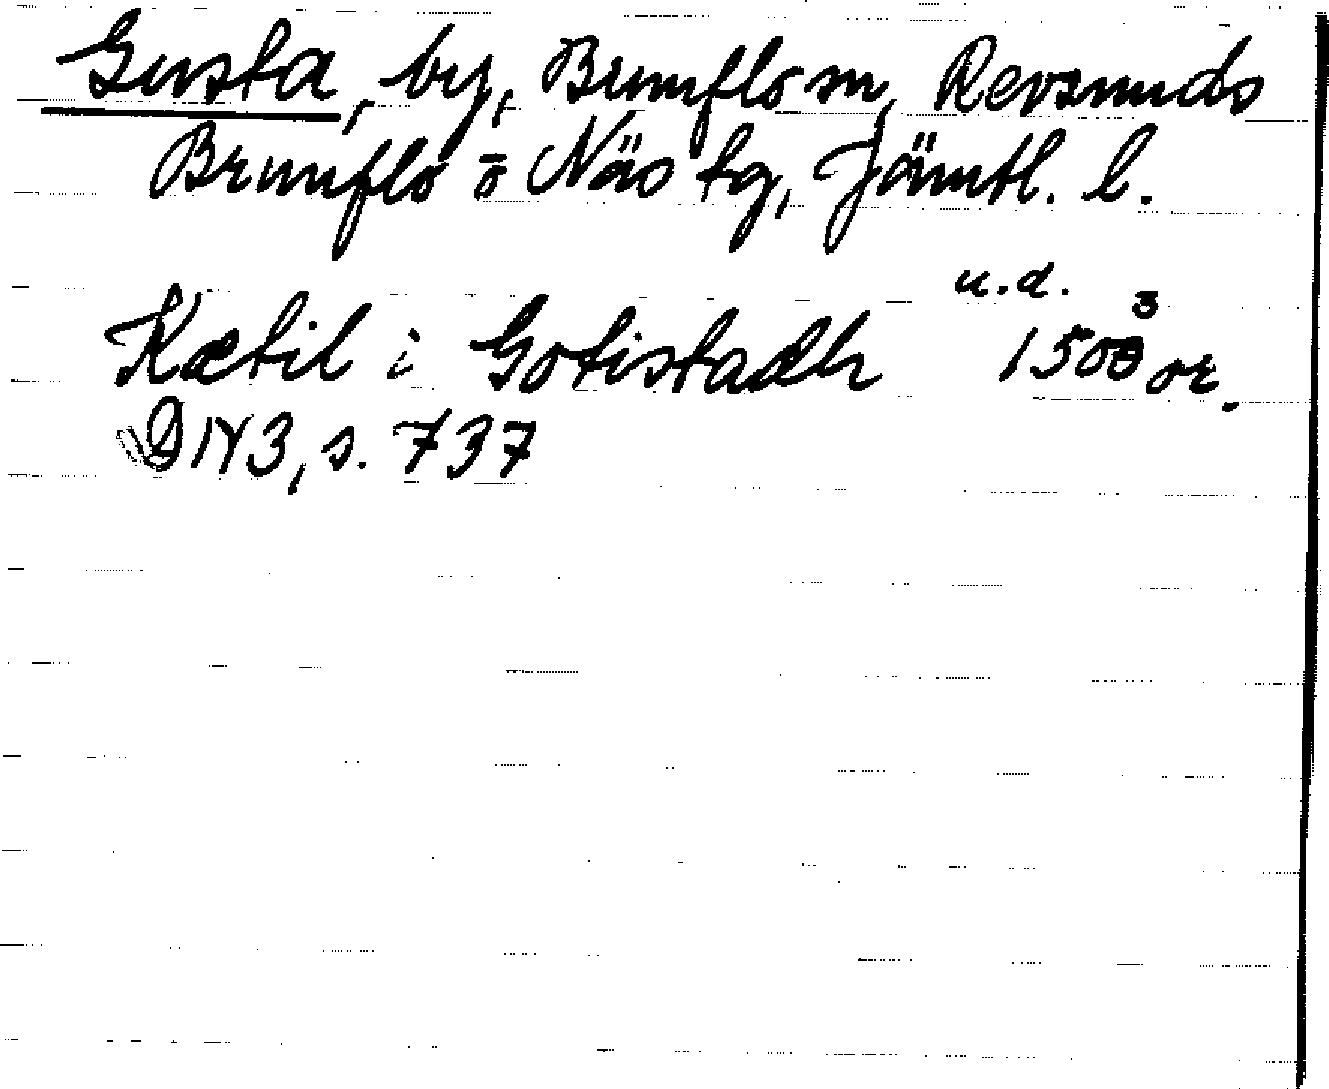 Gusta, by, Brunflo sn, Revsunds
Brunflo o Näs tg, Jämtl. l.
u.d. 3
Kætil i Gotistadh 1500 or.
DN 3, s. 737